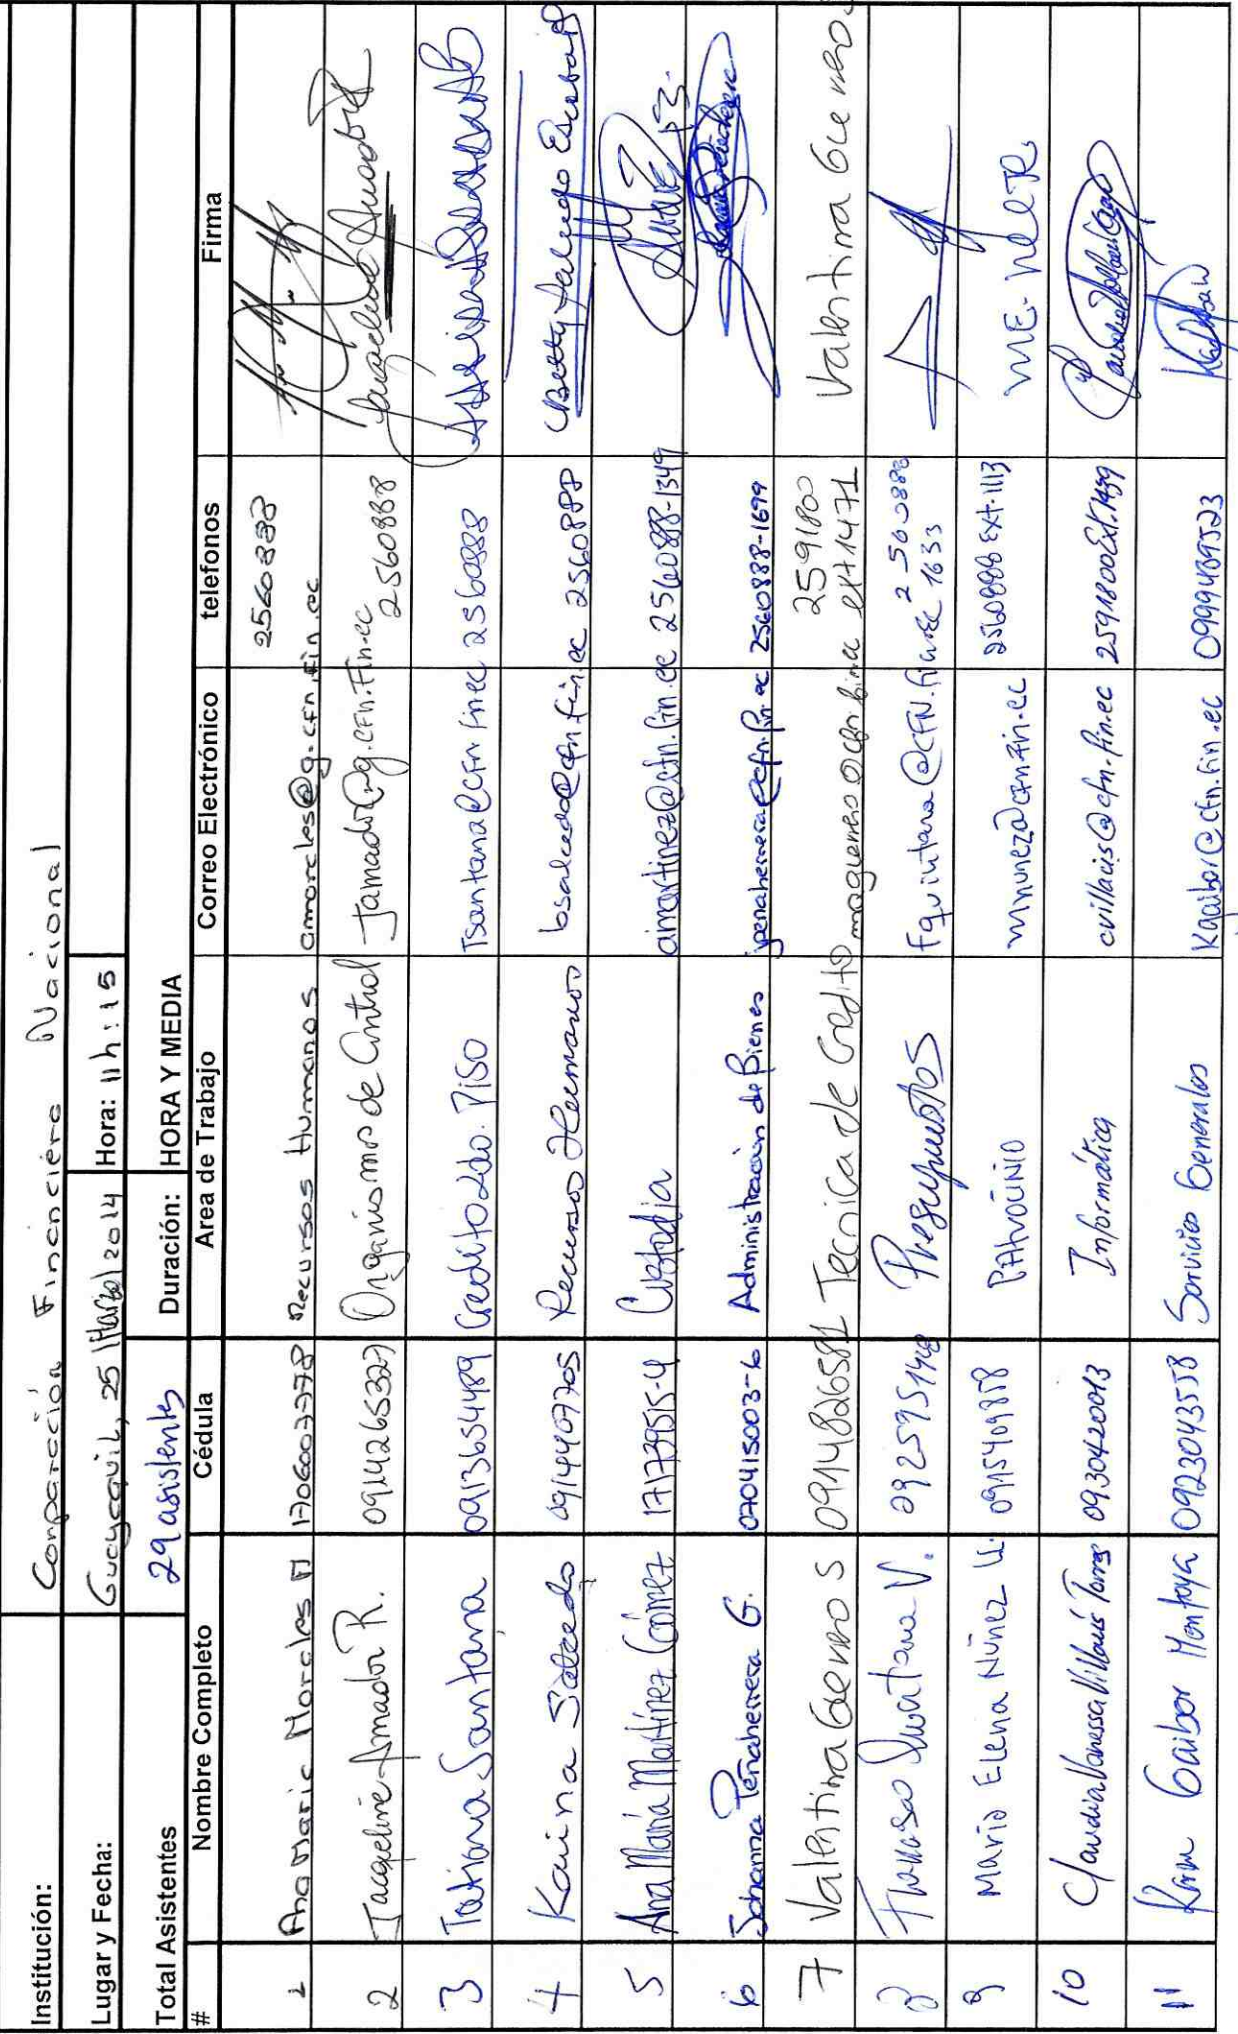 Institución: Corporación Financiera Nacional
Lugar y Fecha: Guayaquil, 25 Marzo/2014 Hora: 11h:15
Total Asistentes 29 asistentes Duración: HORA Y MEDIA
# Nombre Completo Cédula Area de Trabajo Correo Electrónico telefonos Firma
1 Ana Maria Morales M 1706003778 Recursos Humanos amorales@g.cfn.fin.ec 2560888
2 Jacqueline Amador R. 0914265327 Organismos de Control Jamador@g.cfn.Fin.ec 2560888
3 Tatiana Santana 0913654489 Credito 2do. Piso Tsantana@cfn.fin.ec 2560888
4 Karina Salcedo 0914440705 Recursos Humanos bsalcedo@cfn.fin.ec 2560888
5 Ana María Martínez Gómez 171739515-4 Custodia amartinez@cfn.fin.ec 2560888-1349
6 Johanna Peñaherrera G. 070415003-6 Administración de Bienes jpenaherrera@cfn.fin.ec 2560888-1699
7 Valentina Guerrero S 0914826581 Tecnica de Credito maguerrero@cfn.fin.ec 2591800 ext 1471 Valentina Guerrero
8 Quintana V. 0925951448 Presupuestos Fquintana@CFN.fin.ec 2560888 1633
9 Maria Elena Núñez U. 0915409858 PATROCINIO mnunez@cfn.fin.ec 2560888 Ext. 1113
10 Claudia Vanessa Villacís Torres 0930420013 Informática cvillacis@cfn.fin.ec 2591800 Ext. 1439
11 Karen Gaibor Montoya 0923043558 Servicios Generales Kgaibor@cfn.fin.ec 0999489523